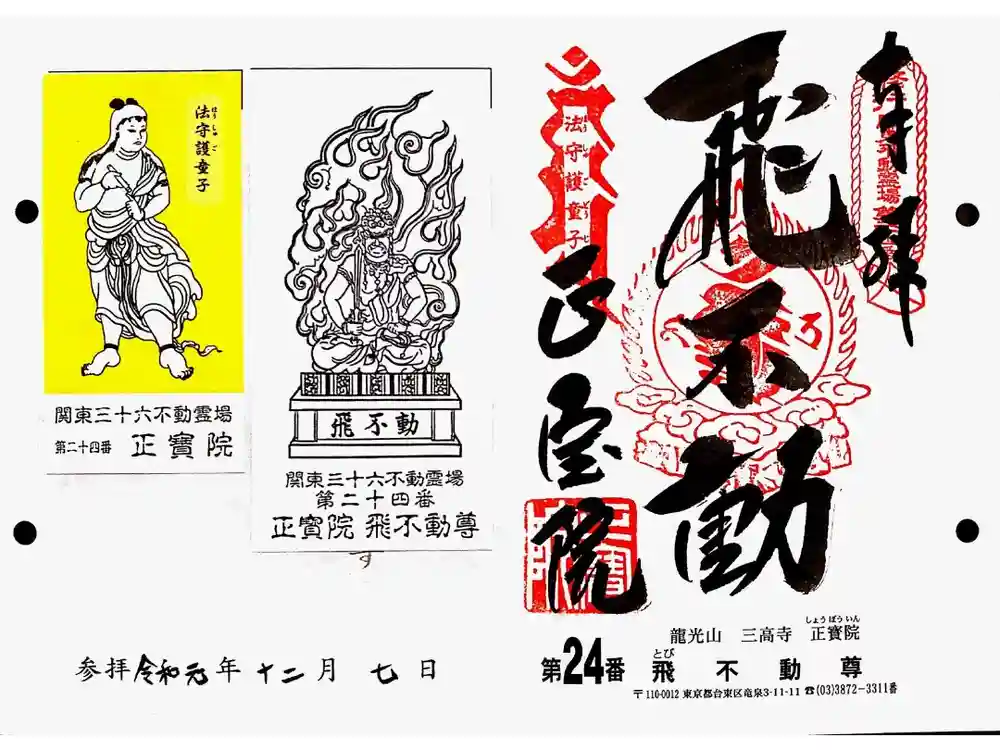 法守護童子
ほうしゅご
関東三十六不動霊場
第二十四番 正寳院
飛不動
関東三十六不動霊場
第二十四番
正寳院 飛不動尊
参拝令和元年十二月七日
奉拝
飛不動
法守護童子
正宝院
龍光山 三高寺 正寳院
しょうぼういん
第24番 飛不動尊
とび
〒110-0012 東京都台東区竜泉3-11-11 ☎(03)3872-3311番